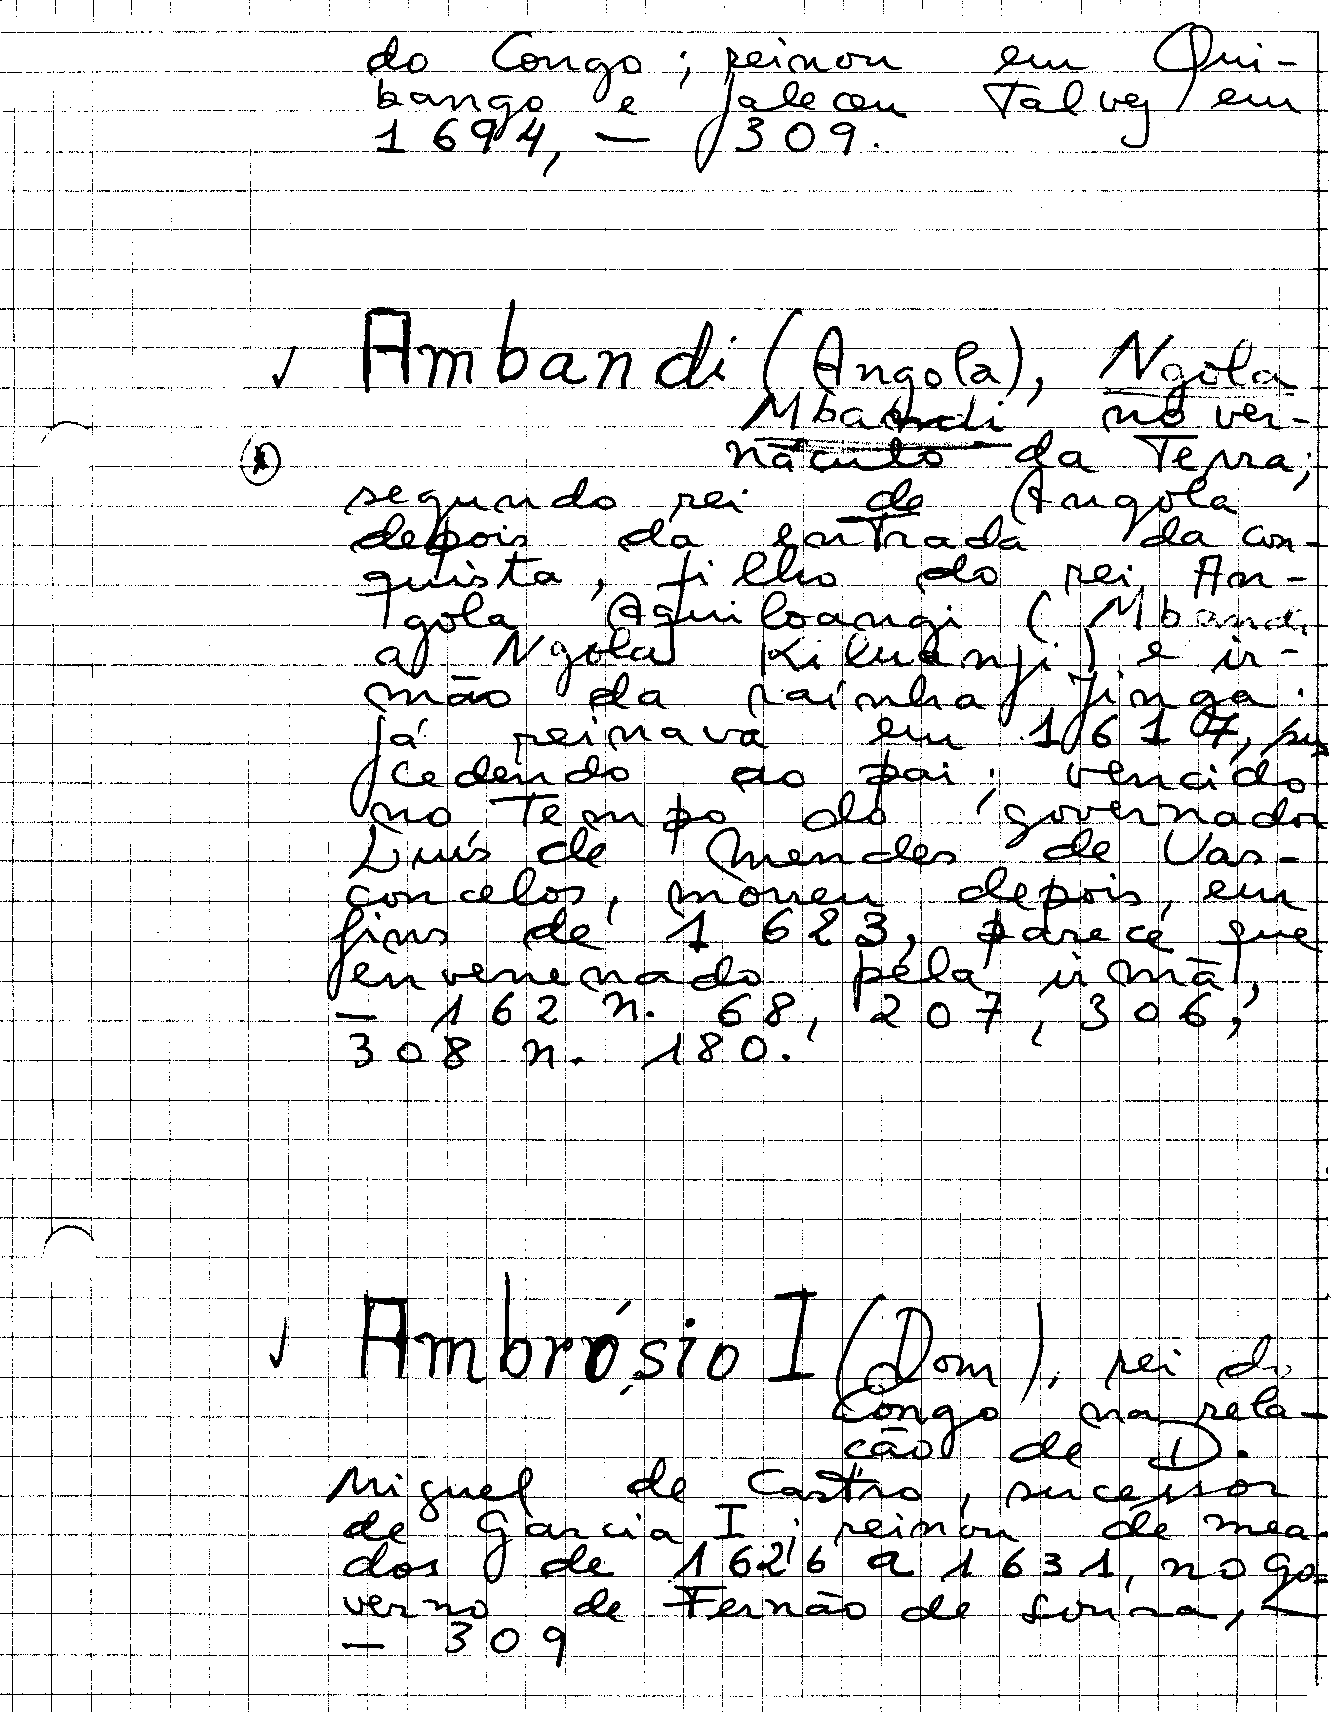 do Congo; reinou em Qui-
bango e faleceu Talvez em
1694, — 309.
Ambandi (Angola), Ngola
Mbandi no ver-
náculo da Terra;
segundo rei de Angola
depois da entrada da con-
quista, filho do rei An-
gola Aquiloangi (Mbandi
a Ngola Kiluanji) e ir-
mão da rainha Jinga.
já reinava em 1617, su
cedendo ao pai; vencido
no Tempo do governador
Luís de Mendes de Vas-
concelos, morreu depois, em
fins de 1623, parece que
envenenado pela irmã,
— 162 n. 68, 207, 306,
308 n. 180.
Ambrósio I (Dom), rei do
Congo na rela-
cão de D.
Miguel de Castro, sucessor
de Garcia I; reinou de mea-
dos de 1626 a 1631, no go-
verno de Fernão de Sousa, —
— 309